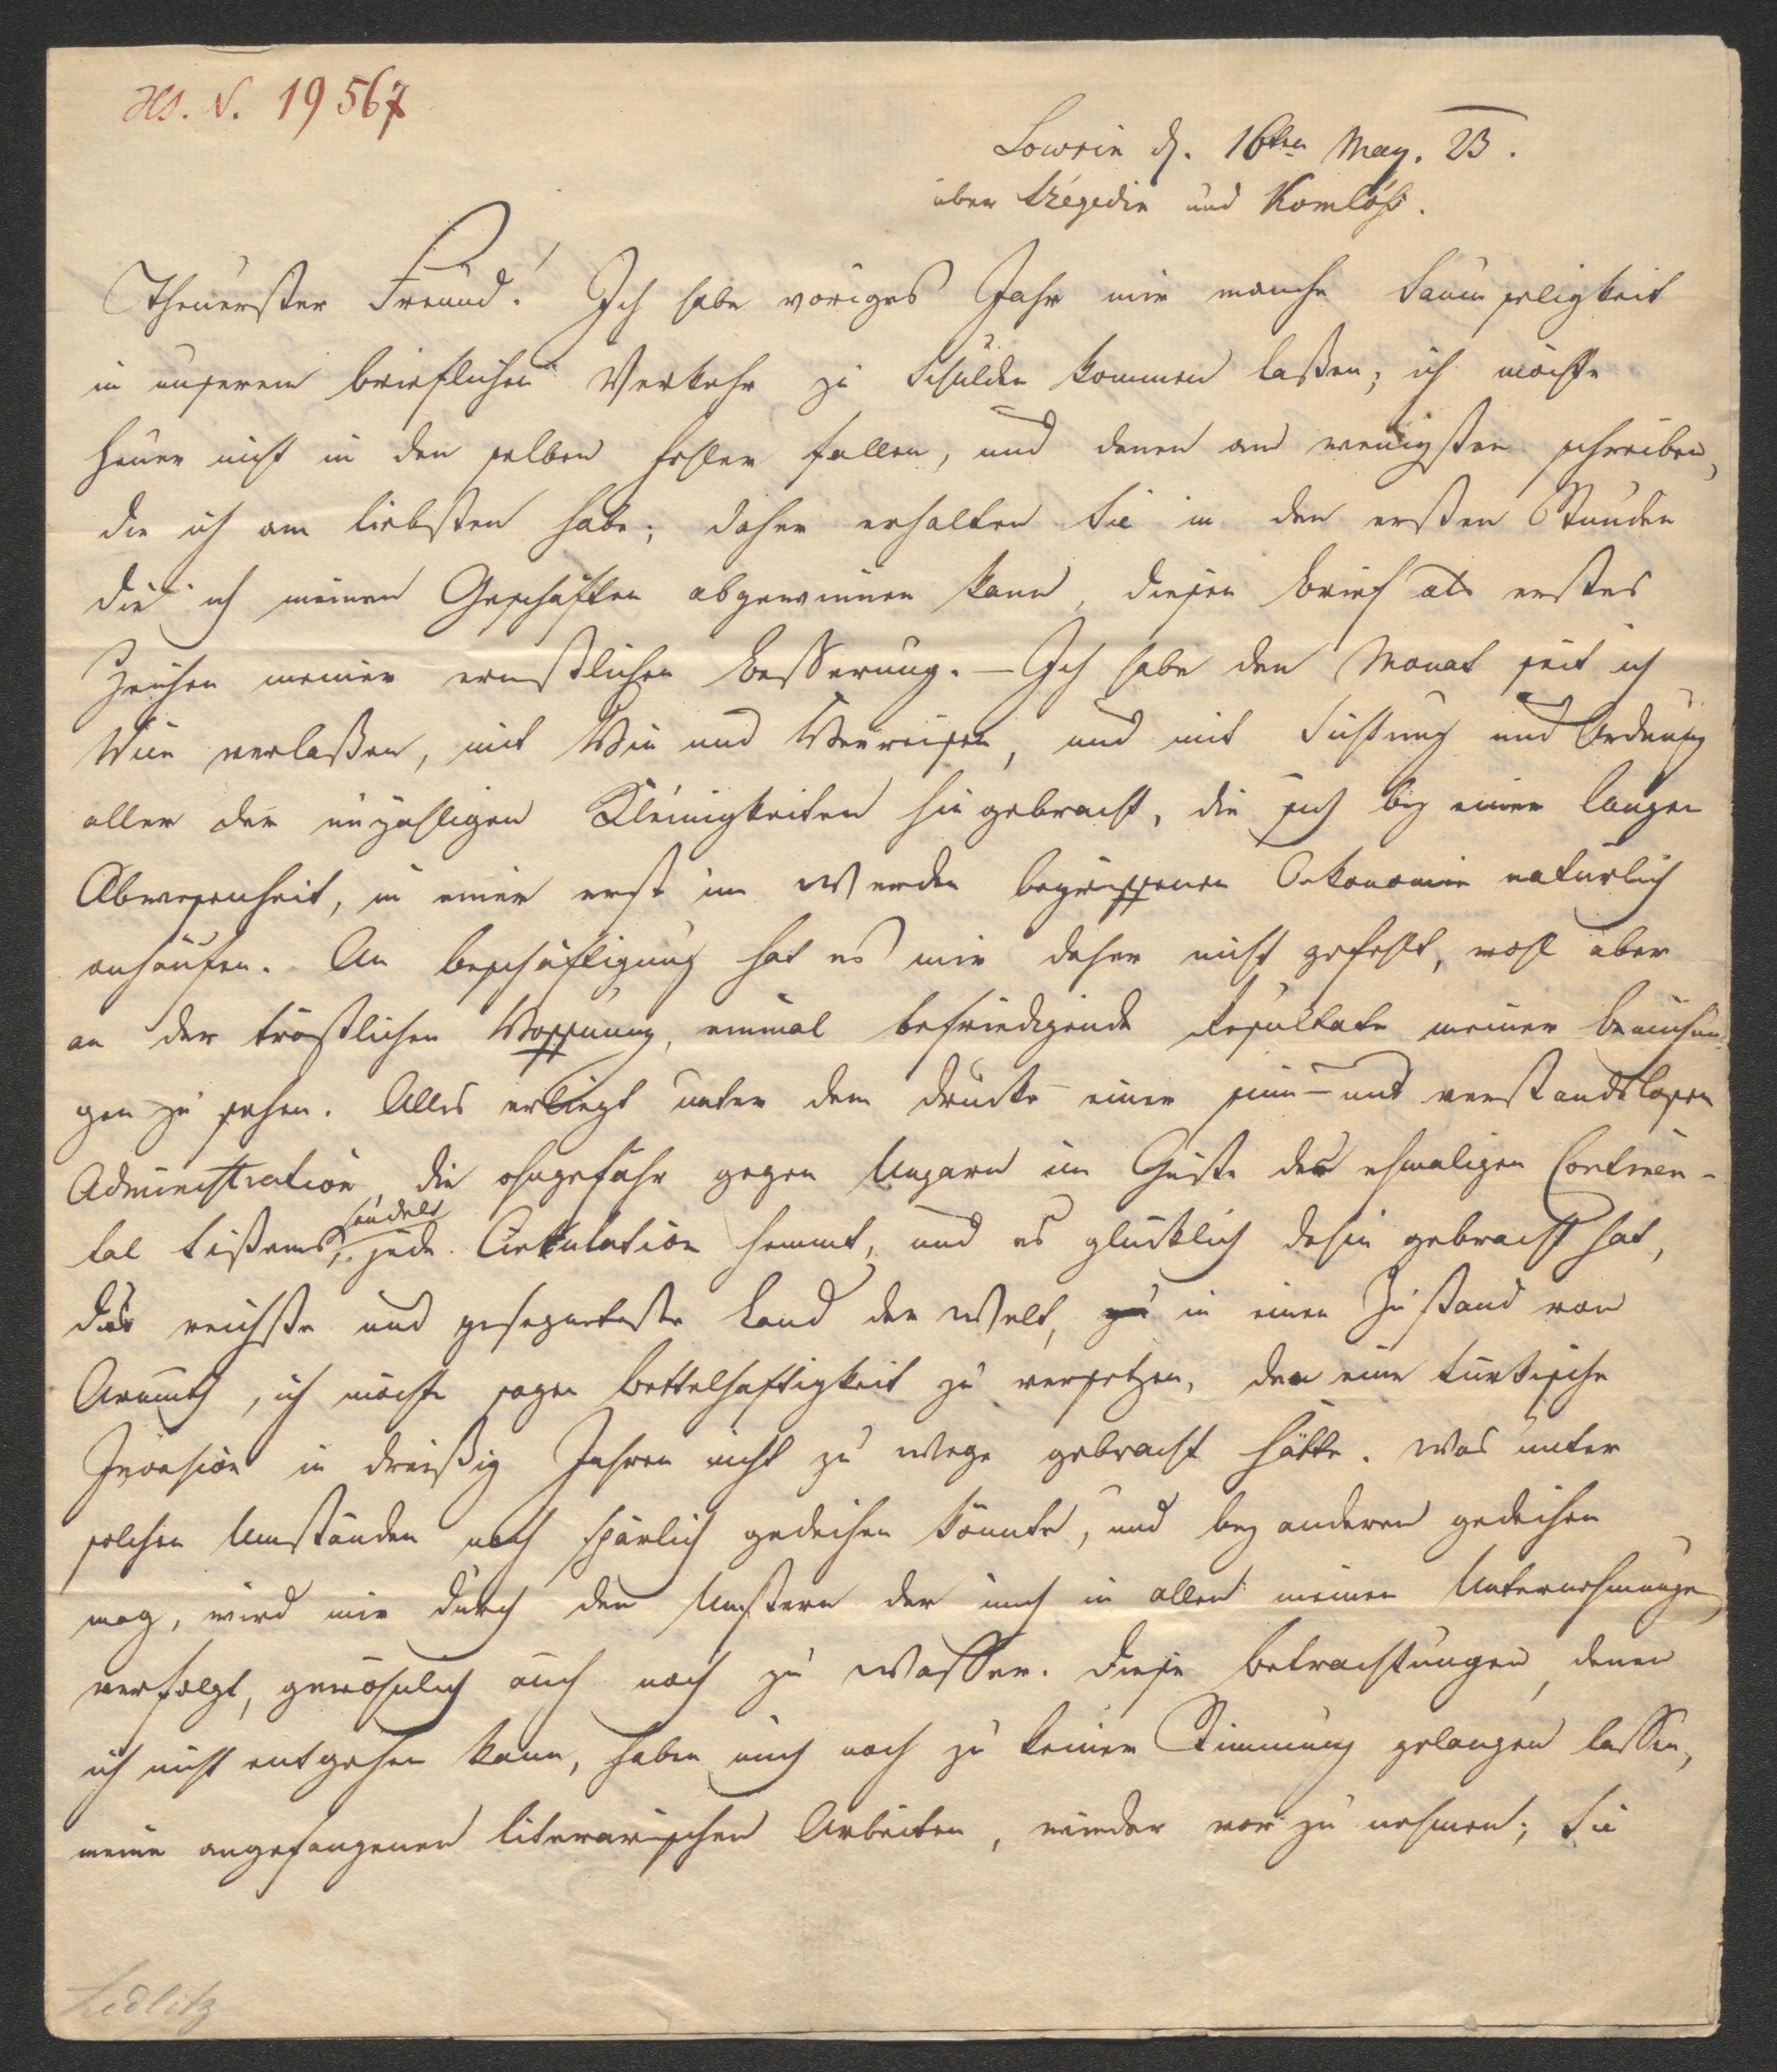 Hs. N. 19567
Lowrin d. 16ten May. 23.
über Szégedin und Komlóß.
Theuerster Freund! Ich habe voriges Jahr mir manche Saumseligkeit
in unserem brieflichen Verkehr zu Schulden kommen laßen; ich möchte
heuer nicht in den selben Fehler fallen, und denen am wenigsten schreiben,
die ich am liebsten habe; daher erhalten Sie in den ersten Stunden
die ich meinen Geschäften abgewinnen kann, diesen Brief als erstes
Zeichen meiner ernstlichen Besserung. – Ich habe den Monat seit ich
Wien verlaßen, mit Hin und Herreisen, und mit Sichtung und Ordnung
aller der unzähligen Kleinigkeiten hingebracht, die sich bey einer langen
Abwesenheit, in einer erst im Werden begriffenen Oekonomie natürlich
anhäufen. An Beschäftigung hat es mir daher nicht gefehlt, wohl aber
an der tröstlichen Hoffnung, einmal befriedigende Resultate meiner Bemühun-
gen zu sehen. Alles erliegt unter dem Drucke einer sinn- und verstandslosen
Administration, die ohngefähr gegen Ungarn im Geiste des ehmaligen Continen-
tal Sistems handelt, jede Cirkulation hemmt, und es glücklich dahin gebracht hat,
das reichste und gesegneteste Land der Welt, zu in einen Zustand von
Armuth, ich möchte sagen Bettelhaftigkeit zu versetzen, den eine türkische
Invasion in dreißig Jahren nicht zu Wege gebracht hätte. Was unter
solchen Umständen noch spärlich gedeihen könnte, und bey anderen gedeihen
mag, wird mir durch den Unstern der mich in allen meinen Unternehmungen
verfolgt, gewöhnlich auch noch zu Wasser. Diese Betrachtungen, denen
ich nicht entgehen kann, haben mich noch zu keiner Stimmung gelangen lassen,
meine angefangenen literarischen Arbeiten, wieder vor zu nehmen; Sie
Zedlitz